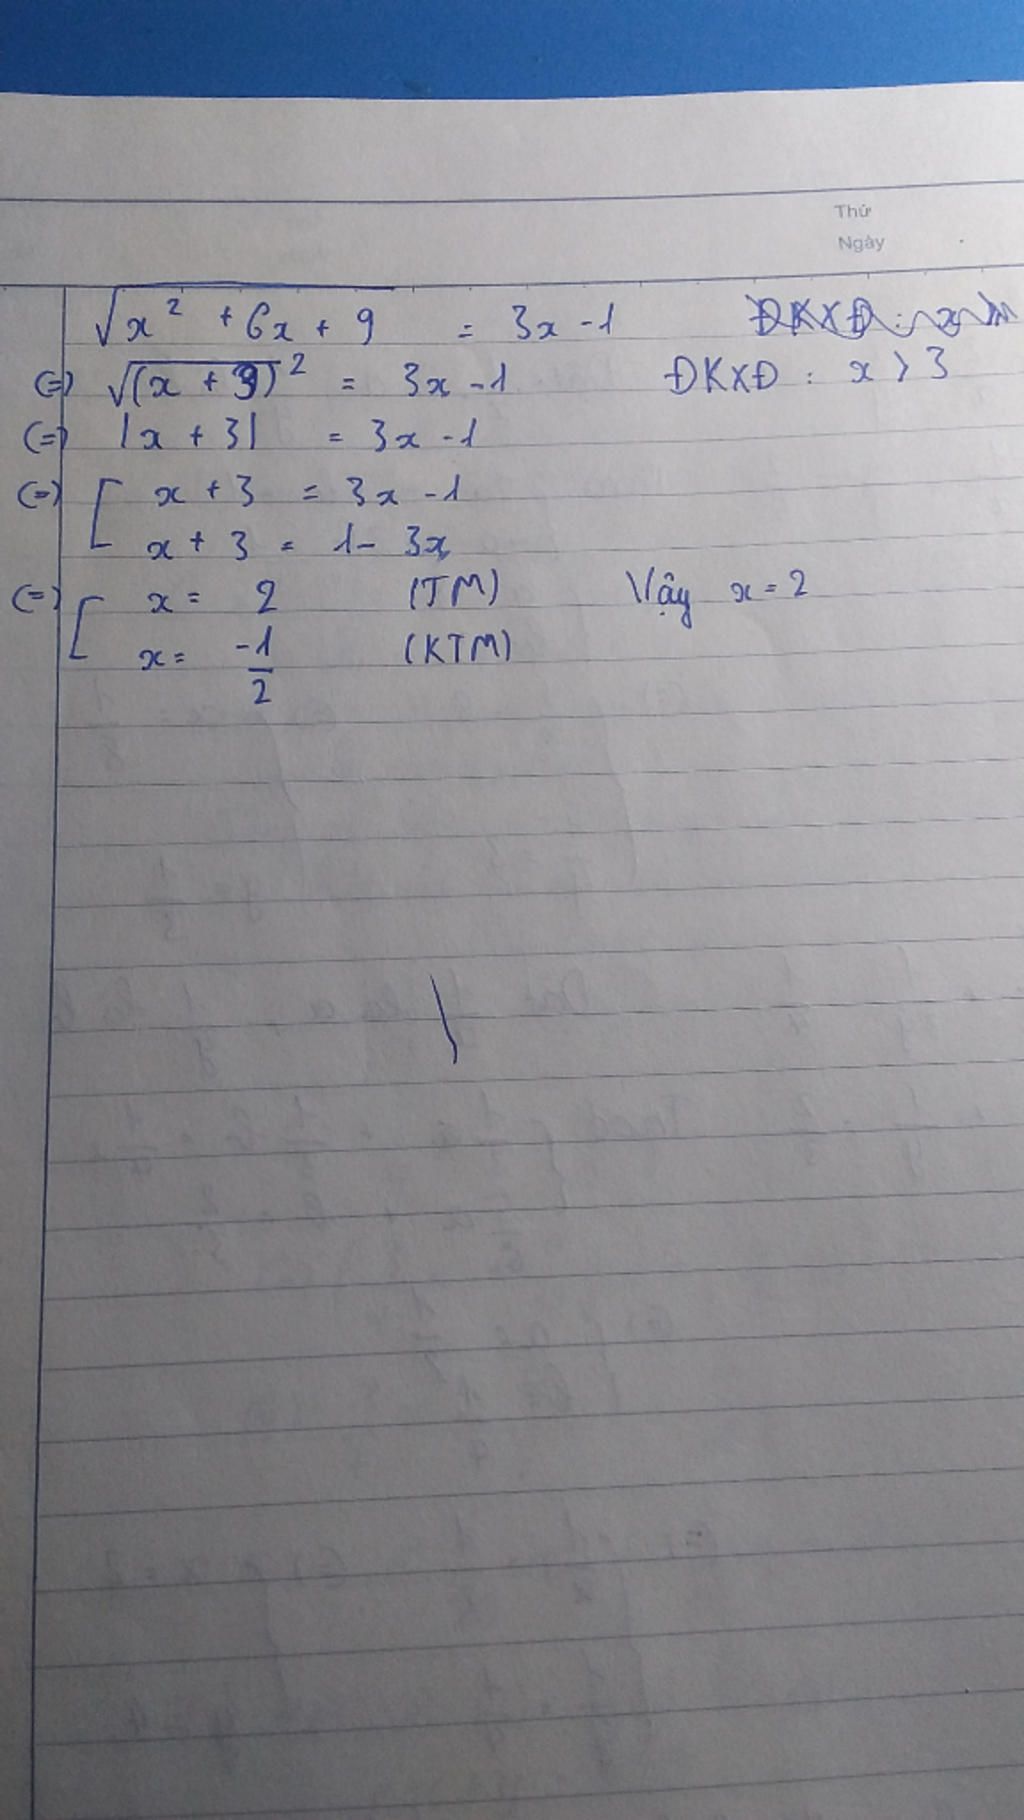 Thứ
Ngày
√x² + 6x + 9 = 3x - 1
(=) √(x + 3)² = 3x - 1 ĐKXĐ : x > 3
(=) |x + 3| = 3x - 1
(=) [ x + 3 = 3x - 1
x + 3 = 1 - 3x
(=) [ x = 2 (TM) Vậy x = 2
x = -1/2 (KTM)